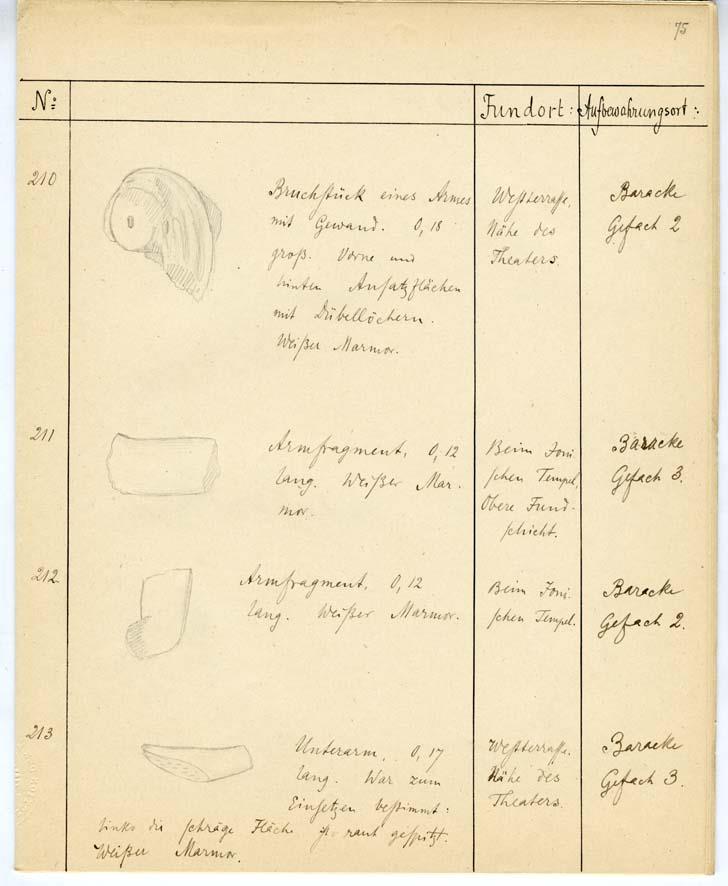 75
No: Fundort: Aufbewahrungsort:
210
Bruchstück eines Armes
mit Gewand. 0,18
groß. Vorne und
hinten Ansatzflächen
mit Dübellöchern.
Weißer Marmor.
Westterrasse,
Nähe des
Theaters.
Baracke
Gefach 2
211
Armfragment, 0,12
lang. Weißer Mar-
mor.
Beim Joni
schen Tempel,
Obere Fund-
schicht.
Baracke
Gefach 3.
212
Armfragment, 0,12
lang. Weißer Marmor.
Beim Joni
schen Tempel.
Baracke
Gefach 2.
213
Unterarm, 0,17
lang. War zum
Einsetzen bestimmt:
links die schräge Fläche ist rauh gespitzt.
Weißer Marmor.
Westterrasse.
Nähe des
Theaters.
Baracke
Gefach 3.